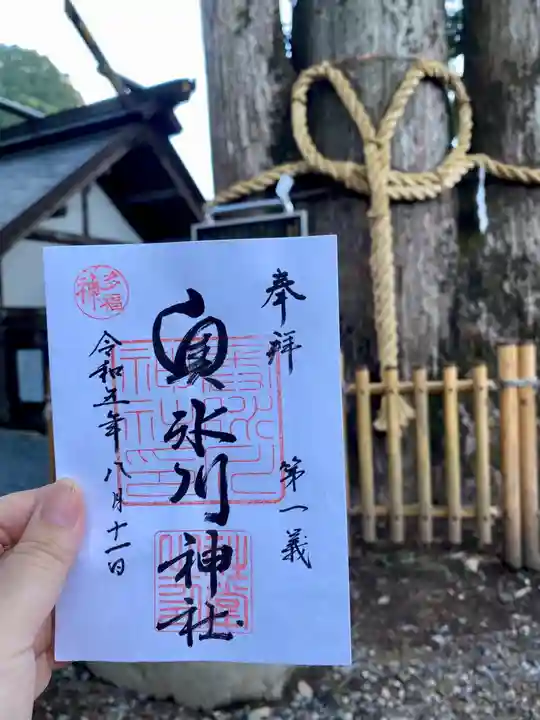 奉拝
第一義
奥氷川神社
多福
神
令和五年八月十一日